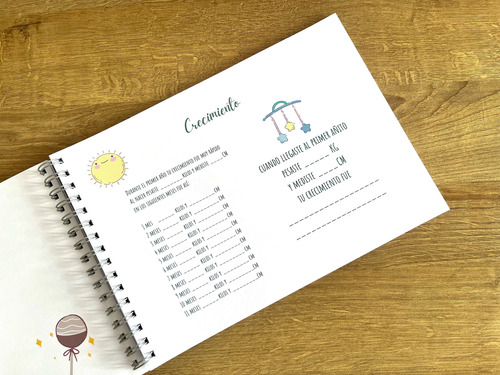 Crecimiento
DURANTE EL PRIMER AÑO TU CRECIMIENTO FUE MUY RÁPIDO
AL NACER PESASTE ________ KILOS Y MEDISTE ______ CM
EN LOS SIGUIENTES MESES FUE ASÍ:
1 MES ________ KILOS Y ________ CM
2 MESES ________ KILOS Y ________ CM
3 MESES ________ KILOS Y ________ CM
4 MESES ________ KILOS Y ________ CM
5 MESES ________ KILOS Y ________ CM
6 MESES ________ KILOS Y ________ CM
7 MESES ________ KILOS Y ________ CM
8 MESES ________ KILOS Y ________ CM
9 MESES ________ KILOS Y ________ CM
10 MESES ________ KILOS Y ________ CM
11 MESES ________ KILOS Y ________ CM
CUANDO LLEGASTE AL PRIMER AÑITO
PESASTE ______ KG
Y MEDISTE ______ CM
TU CRECIMIENTO FUE